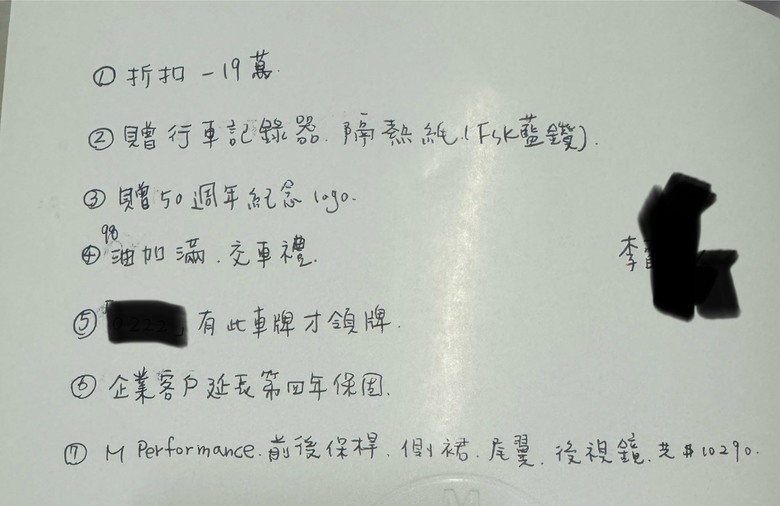 ① 折扣 -19萬.
② 贈行車記錄器. 隔熱紙. (FSK藍鑽).
③ 贈50週年紀念logo.
④ 98油加滿. 交車禮.
⑤ 有此車牌才領牌.
李
⑥ 企業客戶延長第四年保固.
⑦ M Performance. 前後保桿. 側裙. 尾翼. 後視鏡. 共$10290.